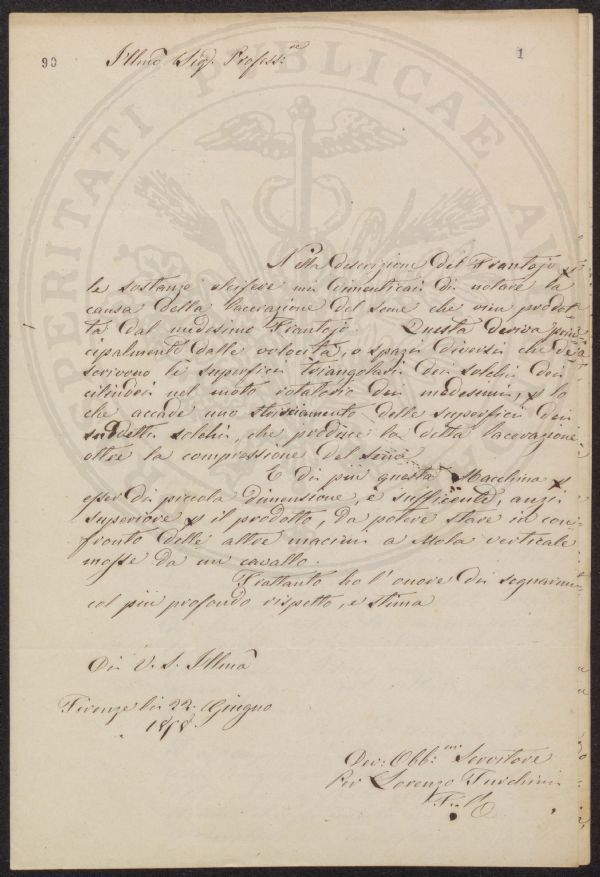 90
1
Illmo Sig. Profess.re
PROSPERITATI PUBLICAE AU
Nella descrizione del Frantojo p
le sostanze oleifere mi dimenticai di notare la
causa della lacerazione del seme che vien prodot-
ta dal medesimo Frantojo. Questa deriva prin-
cipalmente dalle velocità, o spazi diversi che de-
scrivono le superfici triangolari dei solchi dei
cilindri nel moto rotatorio dei medesimi, p lo
che accade uno strisciamento delle superfici dei
suddetti solchi, che produce la detta lacerazione
oltre la compressione del seme.
E di più questa Macchina p
esser di piccola dimensione, è sufficiente, anzi
superiore p il prodotto, da potere stare in con-
fronto delle altre macine a Mola verticale
mosse da un cavallo.
Frattanto ho l'onore di segnarmi
col più profondo rispetto, e stima
Di V. S. Illma
Firenze li 22. Giugno
Dev: Obb:mo Servitore
Per Lorenzo Turchini